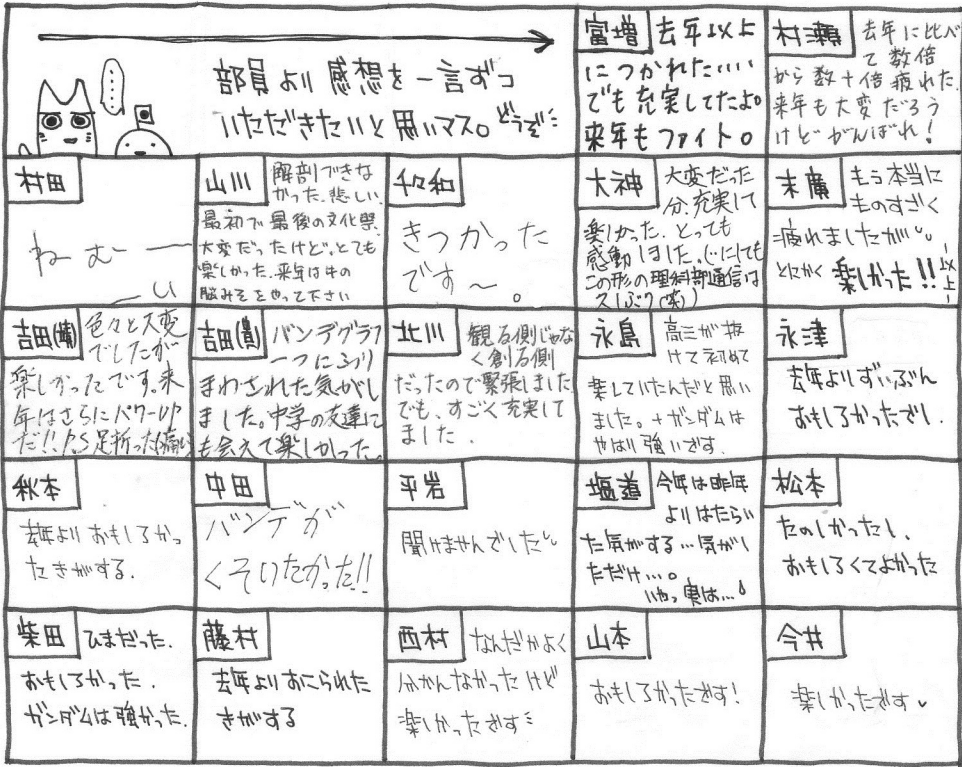 ……
部員より感想を一言ずつ
いただきたいと思いマス。どうぞ
富増
去年以上
につかれた‥‥
でも充実してたよ。
来年もファイト。
村瀬
去年に比べ
て数倍
から数十倍疲れた。
来年も大変だろう
けどがんばれ!
村田
ねむーー
ーい
山川
解剖できな
かった、悲しい、
最初で最後の文化祭、
大変だったけど、とても
楽しかった、来年は牛の
脳みそをやって下さい
和
きつかった
です〜。
大神
大変だった
分、充実して
楽しかった、とっても
感動しました。
この形の理科部通信は
久しぶり(笑)
末廣
もう本当に
ものすごく
疲れましたが
とにかく楽しかった!!
ー以上ー
吉田(晴)
色々と大変
でしたが
楽しかったです。来
年はさらにパワーUP
だ!!P.S足折った(痛い
吉田(貴)
バンデグラフ
一つにふり
まわされた気がし
ました。中学の友達に
も会えて楽しかった。
北川
観る側じゃな
く創る側
だったので緊張しました
でも、すごく充実して
ました.
永島
高三が抜
けて初めて
楽していたんだと思い
ました。+ガンダムは
やはり強いです.
永津
去年よりずいぶん
おもしろかったでし.
秋本
去年よりおもしろかっ
たきがする.
中田
バンデが
くそいたかった!!
平岩
聞けませんでした
塩道
今年は昨年
よりはたらい
た気がする…気がし
ただけ…。
いやっ実は…!
松本
たのしかったし、
おもしろくてよかった
柴田
ひまだった.
おもしろかった.
ガンダムは強かった.
藤村
去年よりおこられた
きがする
西村
なんだかよく
分かんなかったけど
楽しかったです
山本
おもしろかったです!
今井
楽しかったです